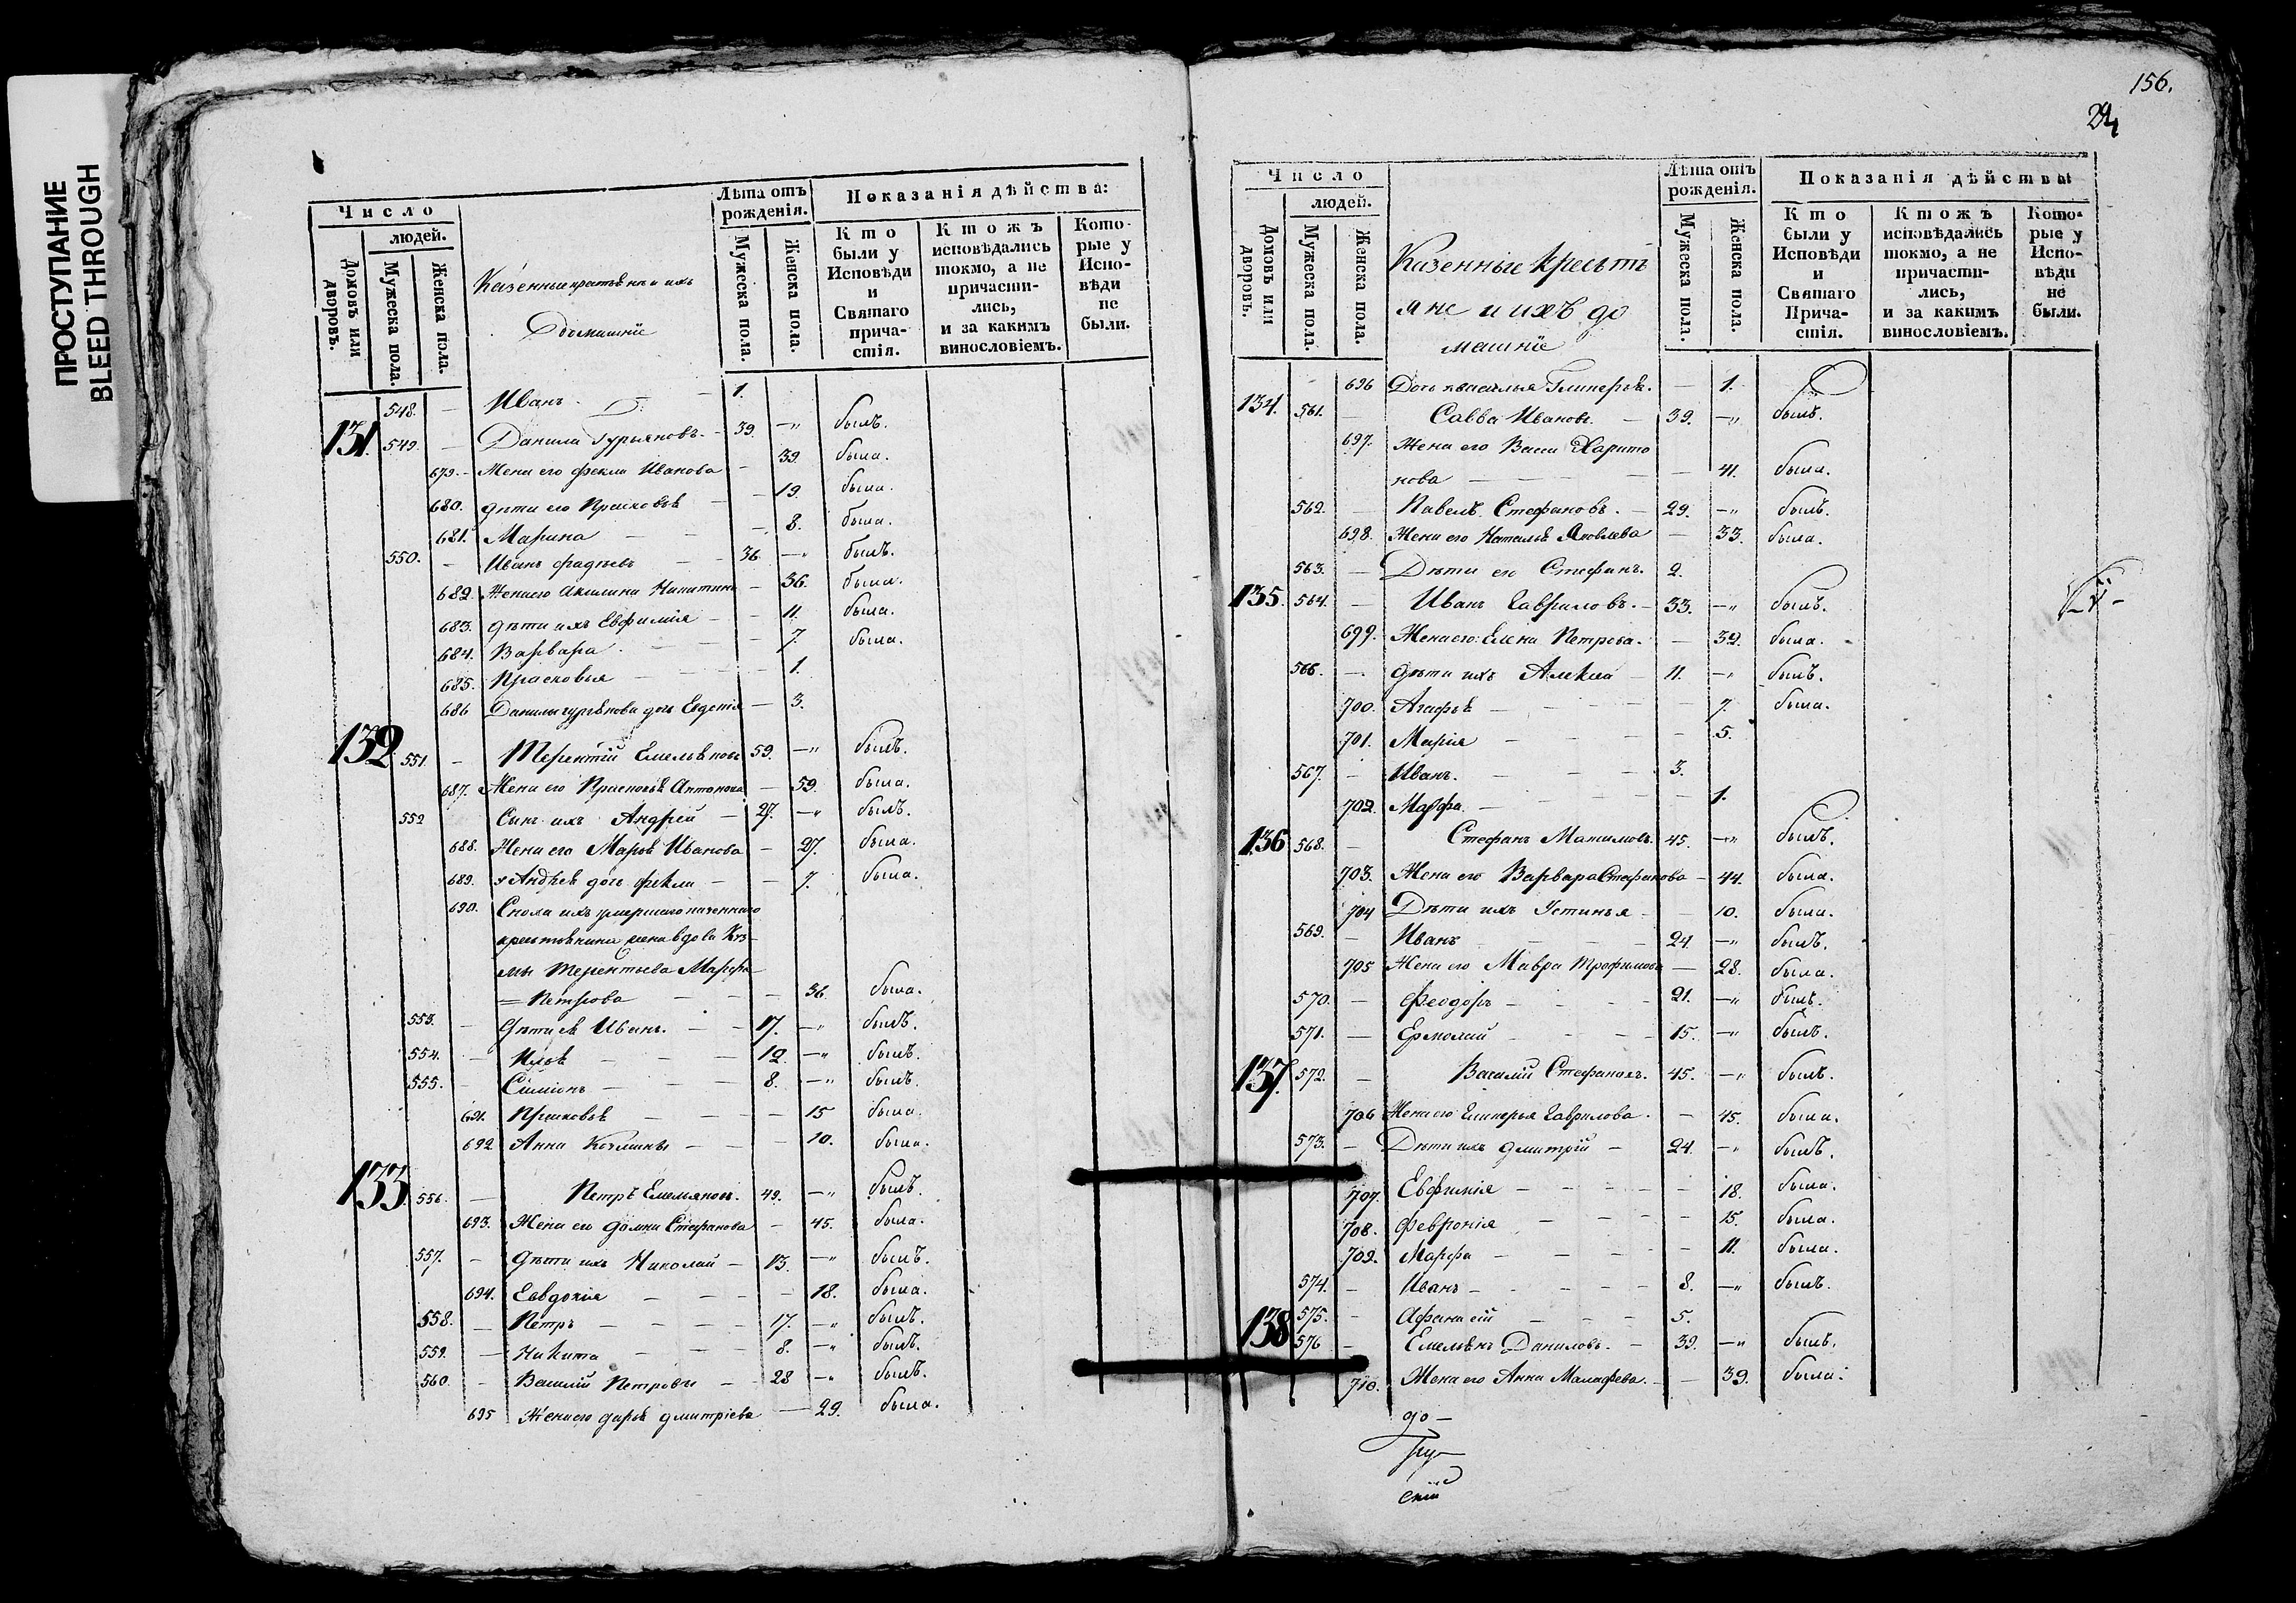 ПРОСТУПАНИЕ
BLEED THROUGH
Число
людей.
Домовъ или дворовъ.
Мужеска пола.
Женска пола.
Казенные крестьяне и ихъ
Домашніе
Лѣта отъ рожденія.
Мужеска пола.
Женска пола.
Показанія дѣйства:
Кто были у Исповѣди и Святаго причастія.
Ктожъ исповѣдались токмо, а не причастились, и за какимъ винословіемъ.
Которые у Исповѣди не были.
548. — Иванъ — 1.
131. 549. — Данила Гурьяновъ — 39. —„ былъ.
679. — Жена его Фекла Иванова — 39. была.
680. дѣти его Прасковья — 19. была.
681. Марина — — 8. была.
550. — Иванъ Фадѣевъ — 36. —„ былъ.
682. Жена его Акилина Никитина — 36. была.
683. дѣти ихъ Евфимія — 11. была.
684. Варвара — 7. была.
685. Прасковья — 1.
686 Данилы Гурьянова дочь Евдокія — 3.
132 551 — Терентій Емельяновъ 59. —„ былъ.
687. Жена его Прасковья Антонова — 59. была.
552 Сынъ ихъ Андрей — 27. —„ былъ.
688. Жена его Марья Иванова — 27. была.
689. у Андрея дочь Фекла — — 7. была.
690. Сноха ихъ умершаго казеннаго
крестьянина жена вдова Коз-
мы Терентьева Марфа
= Петрова — — — 36. была.
553. — Дѣти ея Иванъ. — 17. —„ былъ.
554. — Илья — — 12. —„ былъ.
555. — Симіонъ — — 8. —„ былъ.
691. Прасковья — — 15 была.
692 Анна Козмины — — 10. была.
133 556. — Петръ Емельяновъ. 49. —„ былъ.
693. Жена его Домна Стефанова — 45. была.
557. — Дѣти ихъ Николай — 13. —„ былъ.
694. Евдокія — — — 18. была.
558. — Петръ — — — 17. —„ былъ.
559. — Никита — — 8. —„ былъ.
560. — Василій Петровъ — 28 —„ былъ.
695 Жена его Дарья Дмитріева — 29. была.
156.
24
Число
людей.
Домовъ или дворовъ.
Мужеска пола.
Женска пола.
Казенные Крестья
яне и ихъ до
машніе
Лѣта отъ рожденія.
Мужеска пола.
Женска пола.
Показанія дѣйства
Кто были у Исповѣди и Святаго Причастія.
Ктожъ исповѣдались токмо, а не причастились, и за какимъ винословіемъ.
Которые у Исповѣди не были.
696 Дочь Василья Гликерья. — 1.
134. 561. — Савва Ивановъ. — 39. —„ былъ.
697. Жена его Васса Харито
нова — — — 41. была.
562. — Павелъ Стефановъ. — 29. —„ былъ.
698. Жена его Наталья Яковлева — 33. была.
563. — Дѣти его Стефанъ. 2.
135. 564. — Иванъ Гавриловъ. — 33. —„ былъ.
699. Жена его Елена Петрова. — 32. была.
566. — дѣти ихъ Алексѣй — 11. —„ былъ.
700. Агафья — — — 7. была.
701. Марія — — — 5.
567. — Иванъ. — — 3.
702. Марфа. — — — 1.
136 568. — Стефанъ Максимовъ. 45. —„ былъ.
703. Жена его Варвара Стефанова — 44. была.
704 Дѣти ихъ Устинья — — 10. была.
569. — Иванъ — — 24. —„ былъ.
705 Жена его Мавра Трофимова — 28. была.
570. — Феодоръ — — — 21. —„ былъ.
571. — Ермолай — — — 15. —„ былъ.
137. 572. — Василій Стефановъ. 45. —„ былъ.
706 Жена его Гликерья Гаврилова. — 45. была.
573. — Дѣти ихъ Дмитрій — 24. —„ былъ.
707. Евфимія — — — 18. была.
708. Февронія — — — 15. была.
709. Марфа — — — 11. была.
574. — Иванъ — — — 8. —„ былъ.
575. — Афанасій — — 5.
138 576 — Емельянъ Даниловъ. — 39. —„ былъ.
710. Жена его Анна Малафеева. — 39. была.